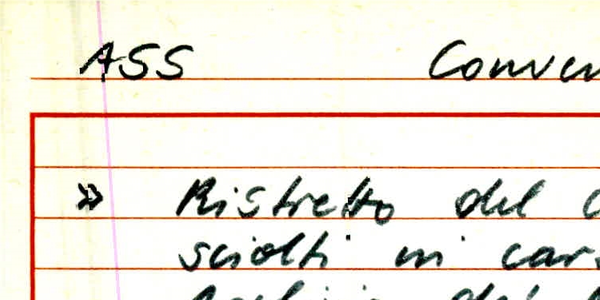 ASS Conven
» Ristretto del
sciolti in car